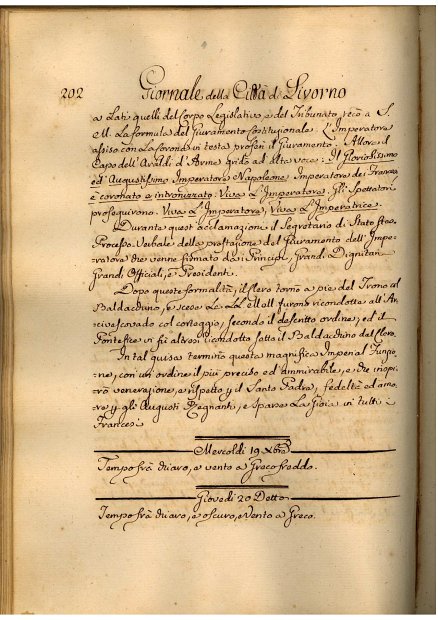 202 Giornale della Città di Livorno
a Lati quelli del Corpo Legislativo, e del Tribunato, recò a S.
M. La formula del Giuramento Costituzionale. L'Imperatore
assiso con La Corona in testa profferì il Giuramento. Allora il
Capo dell'Araldi d'Arme gridò ad Alta voce: Il Gloriosissimo
ed'Augustissimo Imperatore Napoleone Imperatore dei Francesi
è coronato e intronizzato: Viva L'Imperatore. Gli Spettatori
proseguirono: Viva L'Imperatore, Viva L'Imperatrice.
Durante quest'acclamazioni il Segretario di Stato stese
Processo Verbale della prestazione del Giuramento dell'Impe-
ratore che venne firmato dai Principi, Grandi Dignitari
Grandi Officiali, e Presidenti.
Dopo queste formalità, il Clero tornò a piè del Trono col
Baldacchino, e scese Le LL. MM. furono ricondotte all'Ar-
civescovado col corteggio, secondo il descritto ordine, ed il
Pontefice vi fù altresì ricondotto sotto il Baldacchino del Clero.
In tal guisa terminò questa magnifica Imperial Funzio-
ne, con un ordine il più preciso ed'ammirabile, e che inspi-
rò venerazione, e rispetto p il Santo Padre, fedeltà ed amo-
re p gli Augusti Regnanti, e sparse La Gioia in tutti i
Francesi
Mercoldì 19 Xbre
Tempo frà chiaro, e vento a Greco freddo.
Giovedì 20 Detto
Tempo frà chiaro, e oscuro, e Vento a Greco.